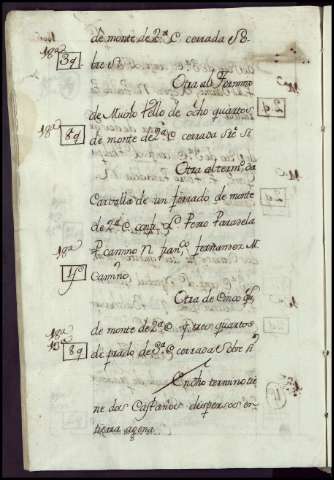 de monte de 2ª C. cerrada S B.
18ª 3q bre si
Otra al termino
de Mucho Pello de ocho quartos
18ª 8q de monte de 2ª C. cerrada Sre. Si
Otra al termº. da
Carvalla de un ferrado de monte
de 2ª C. Perro Paradela
P. camino N. franº. fernandez M.
18ª 1fº Camino
Otra de Cinco qs.
18ª de monte de 2ª C. y tres quartos
15ª 8q de prado de 3ª C. cerrada Sobre si
En dho termino tie
ne dos Castaños despersos en
tierra agena